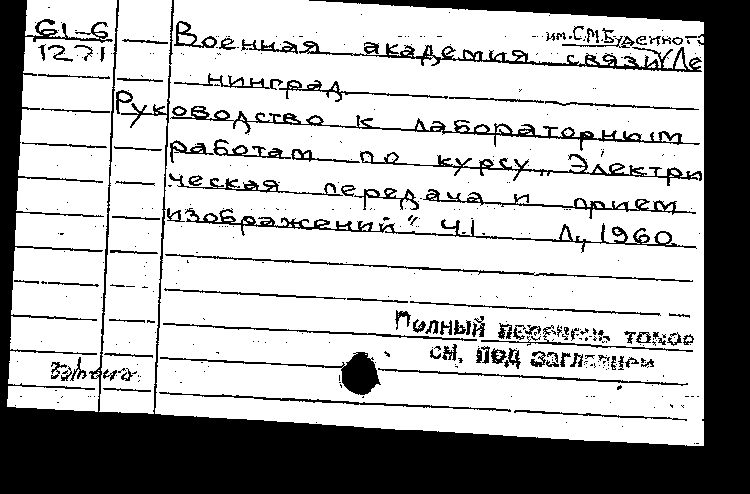 61-6
1271
им. С.М.Буденного
Военная академия связи Ле
нинград.
Руководство к лабораторным
работам по курсу „Электри
ческая передача и прием
изображений“ Ч.I. Л., 1960
Полный перечень томов
см. под заглавием